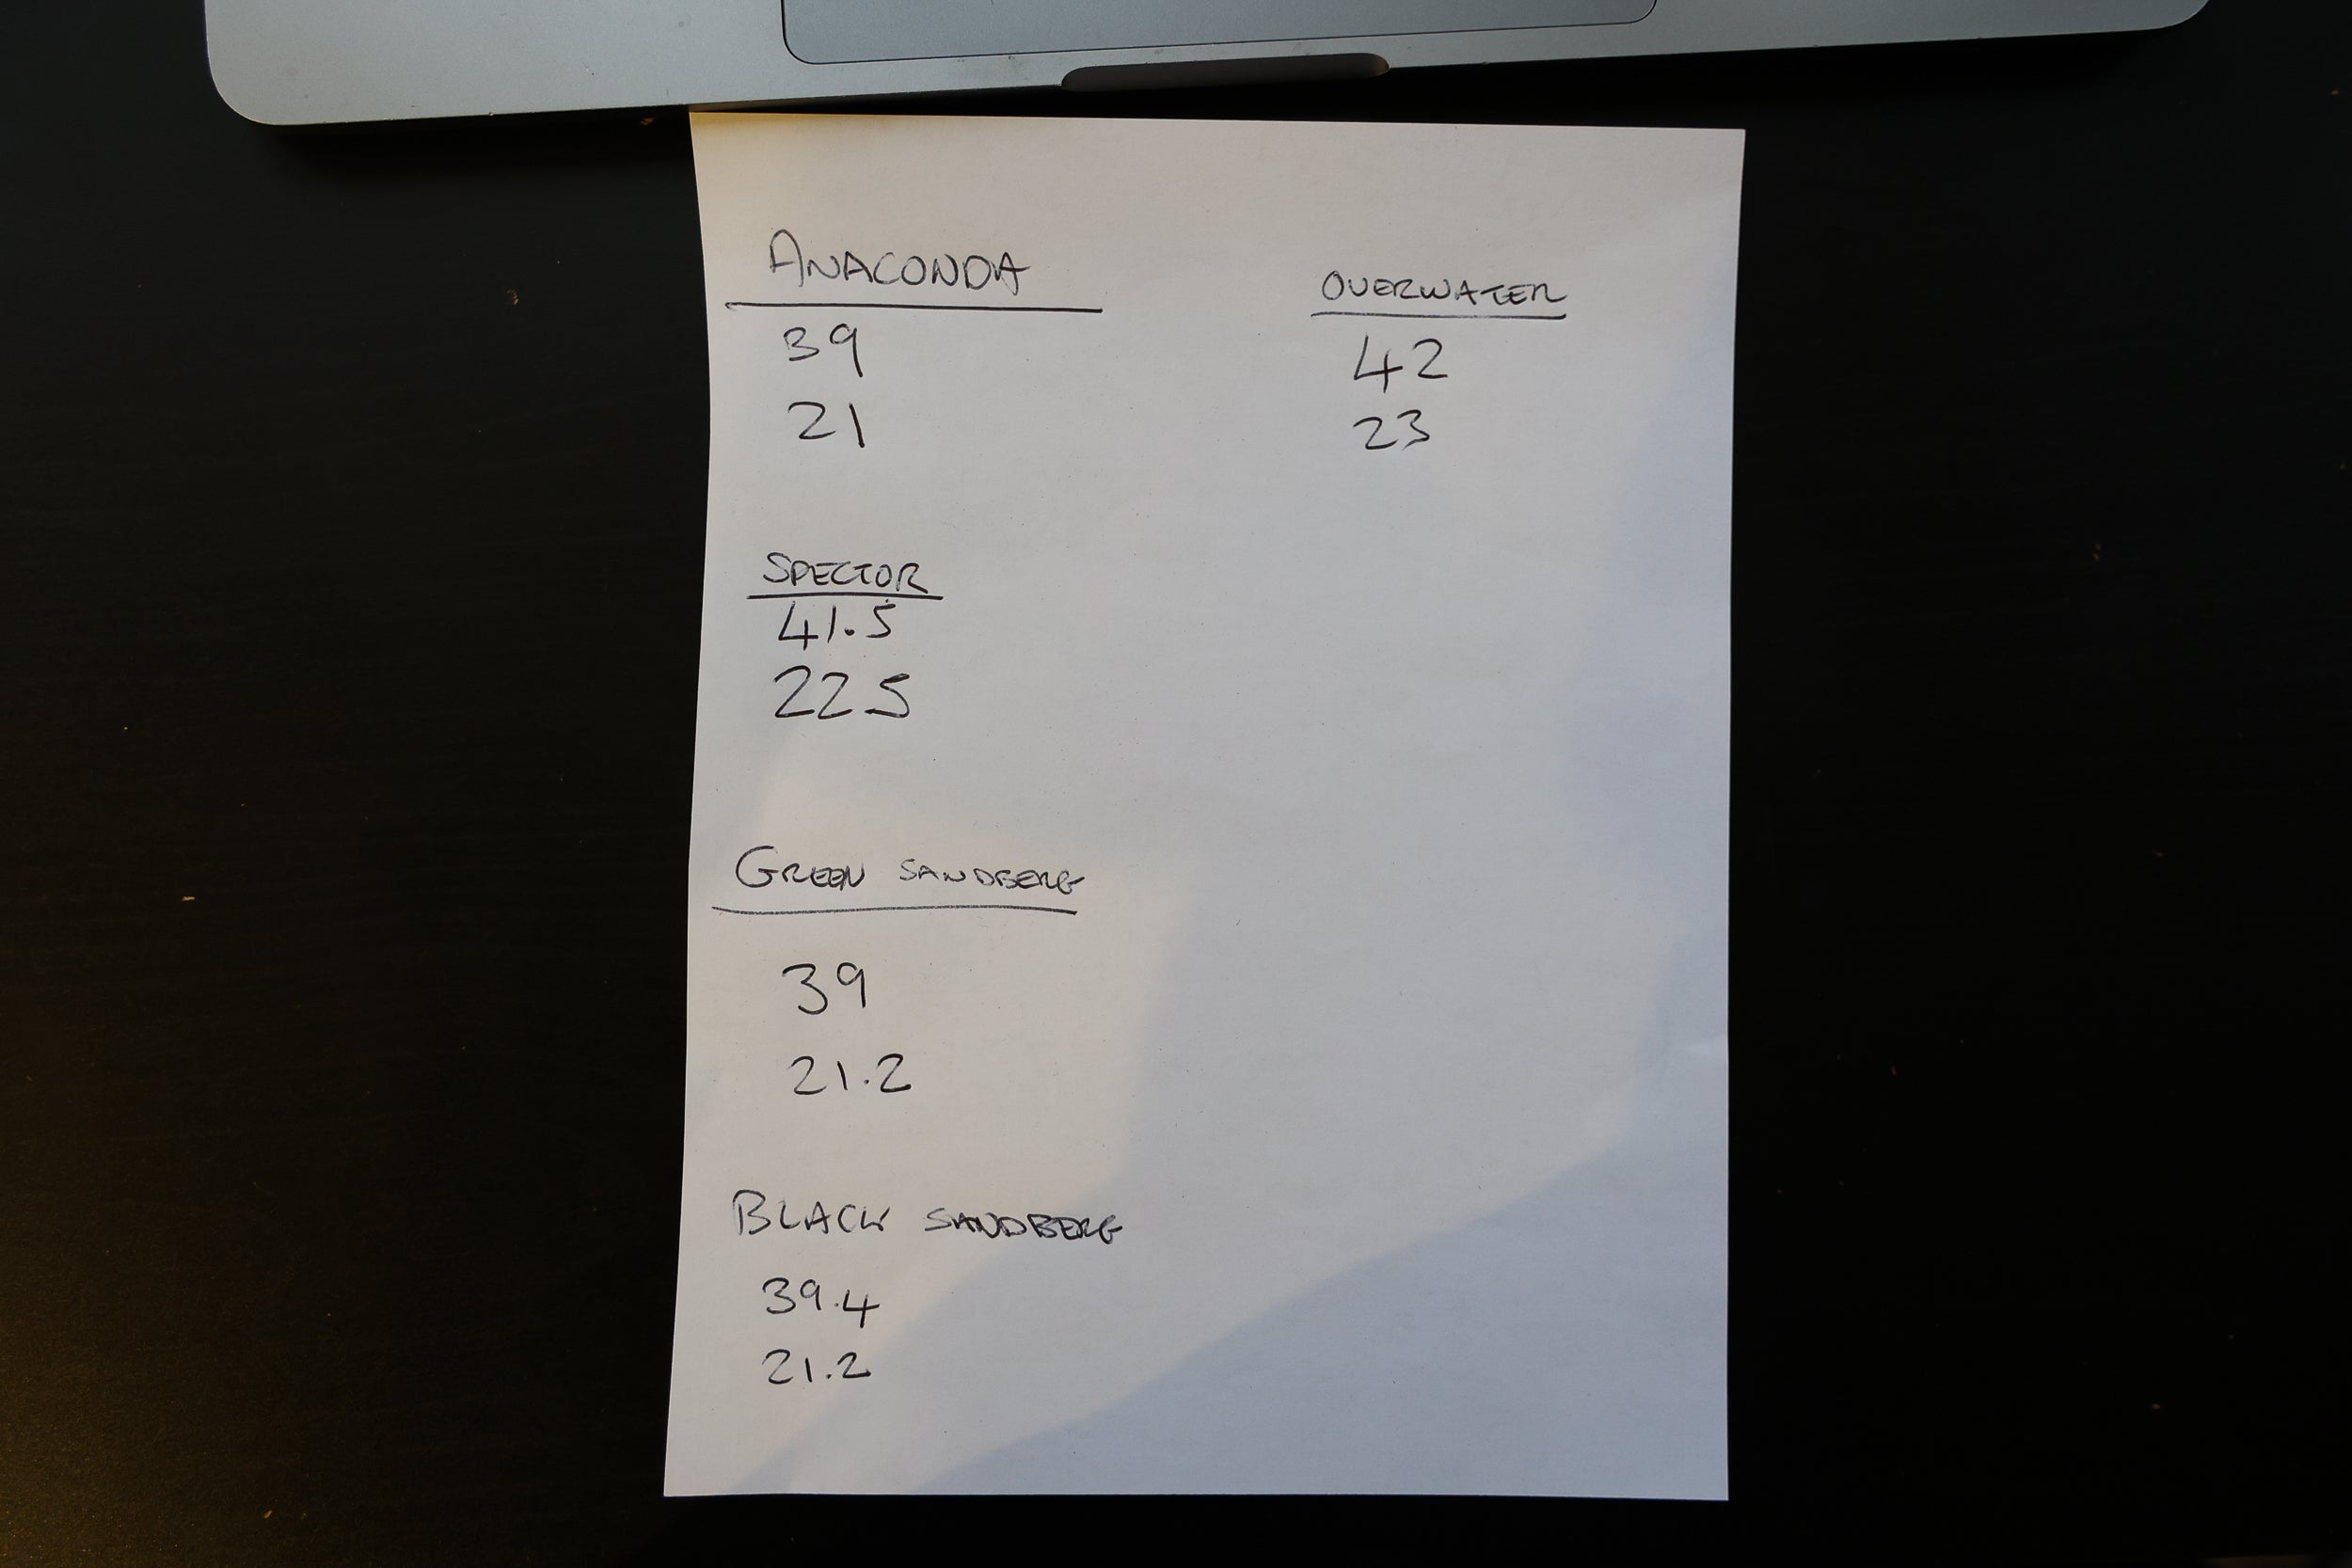 ANACONDA
39
21
OVERWATER
42
23
SPECTOR
41.5
225
GREEN SANDBERG
39
21.2
BLACK SANDBERG
39.4
21.2